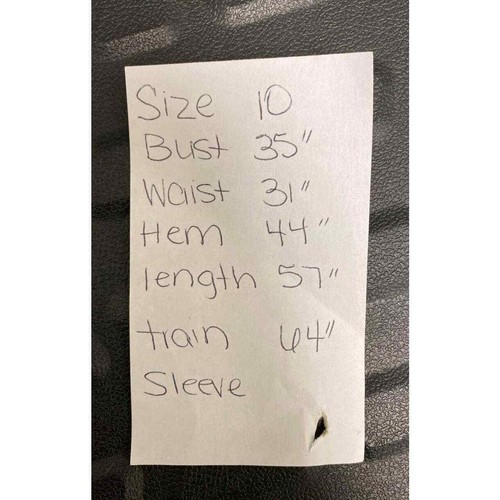 Size 10
Bust 35"
Waist 31"
Hem 44"
length 57"
train 64"
Sleeve